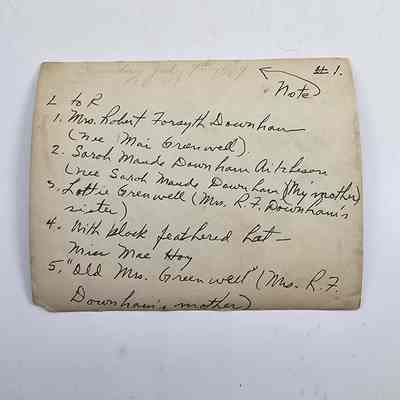 Sunday July 1st
# 1.
Note
L to R
1. Mrs. Robert Forsyth Downham
(nee Mai Greenwell).
2. Sarah Maude Downham Aitcheson
(nee Sarah Maude Downham) (My mother)
3. Lottie Grenwell (Mrs. R.F. Downham's
sister)
4. With black feathered hat –
Miss Mae Hoy
5. "Old Mrs. Greenwell" (Mrs. R.F.
Downham's mother)